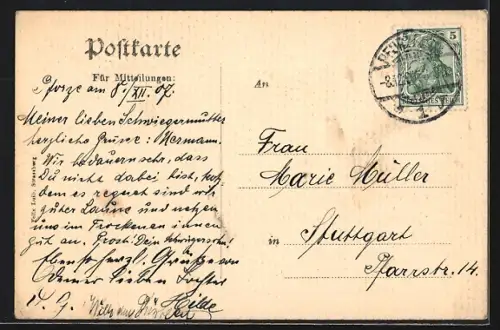 Postkarte
Für Mitteilungen:
An
5
am 8./XII. 07.
Meiner lieben Schwiegermutter
herzliche Grüsse: Hermann.
Wir bedauern sehr, dass
Du nicht dabei bist, trotz-
dem es regnet sind wir
guter Laune und netzen
uns im Trockenen innen
gut an. Prost! Dein Schwiegersohn!
Ebenso herzl. Grüsse von
Deiner lieben Tochter
Hilde
Frau
Marie Müller
in Stuttgart
Pfarrstr. 14.